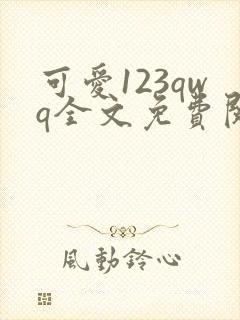 可愛123qw
q全文免費閱
風動鈴心